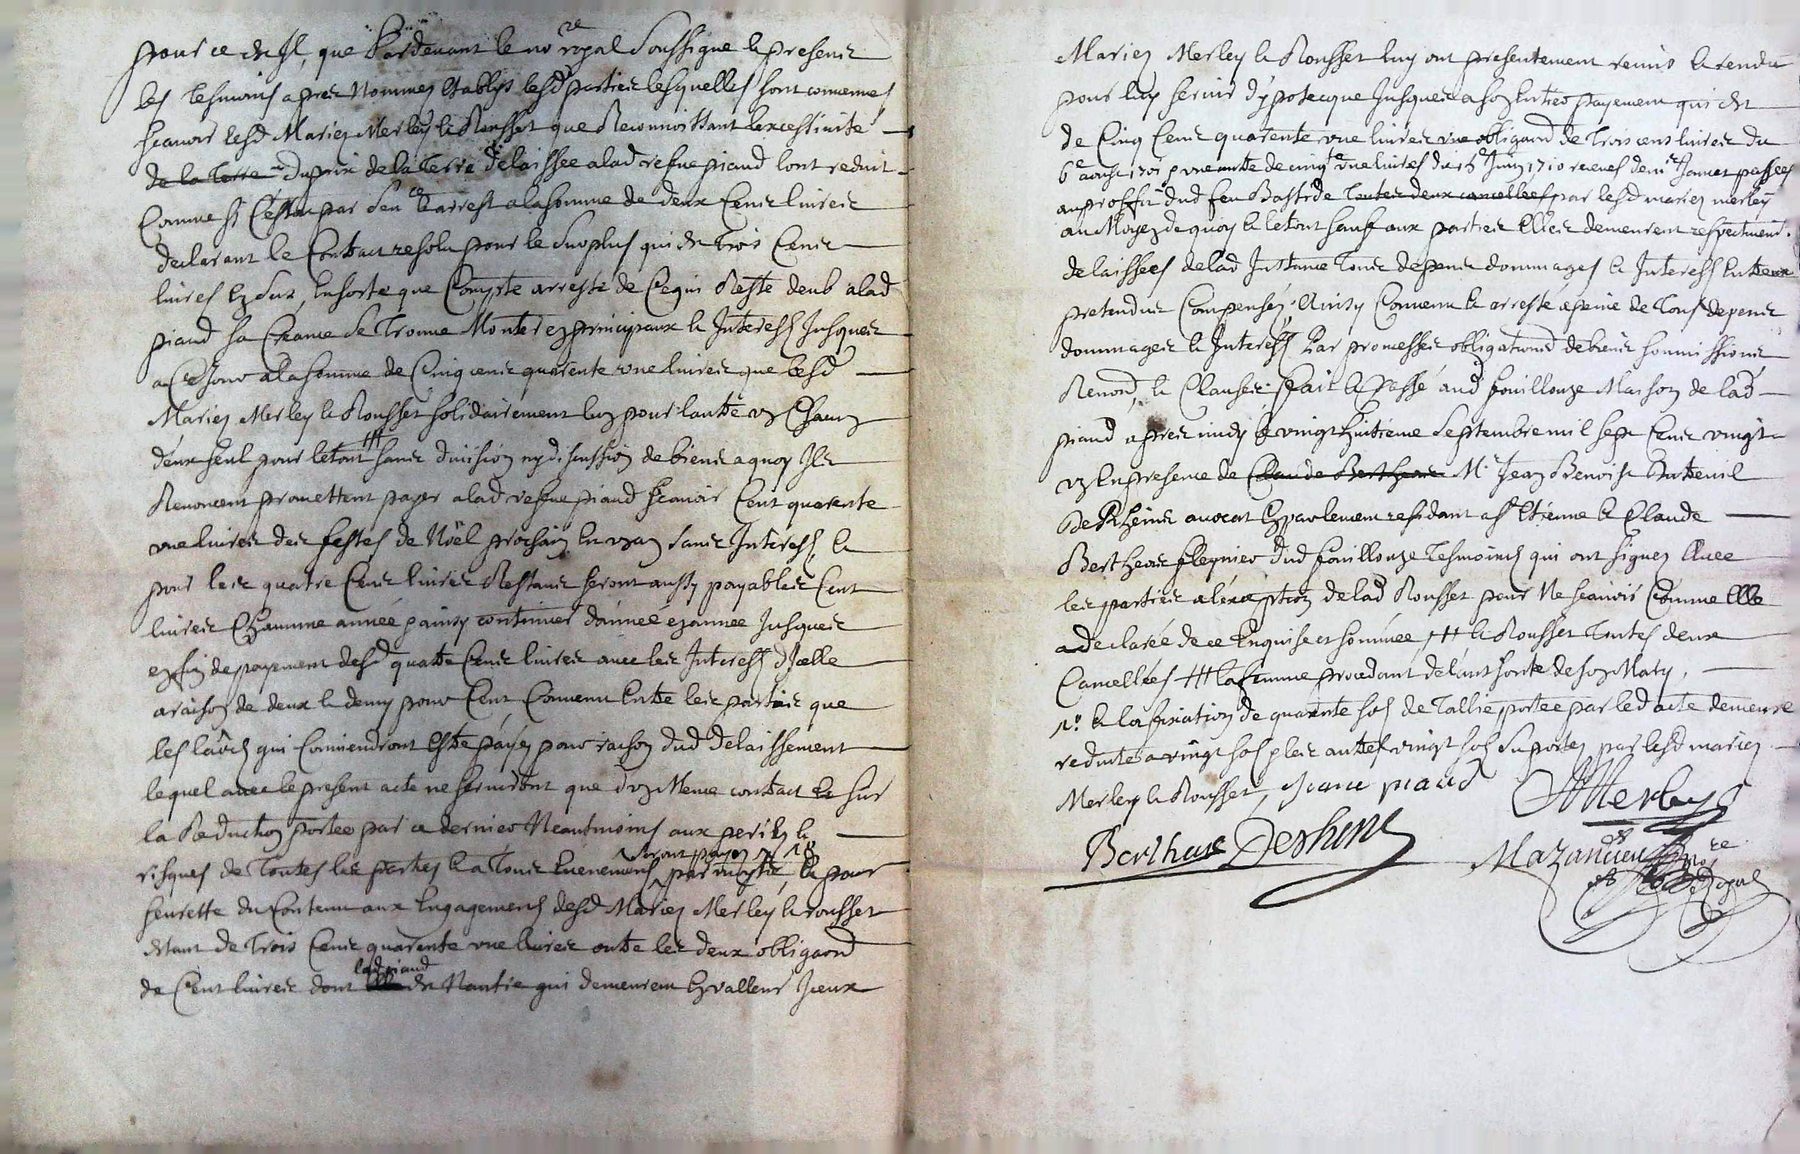 pour ce est il, que Pardevant le no.re royal Soussigné & presents
les tesmoins apres Nommez Establys lesd parties lesquelles sont convenues
scavoir lesd Mariez Merley & Rousset que Reconnoissant l'excessivité
de la Terre du prix de la terre delaissée a lad vefue piaud l'ont reduit
Comme si C'estoit par Sentce & arrest a la somme de deux Cents livres
declarant le Contract resolu pour le Surplus qui est Trois Cents
livres En Sus, En sorte que Compte arresté de Ce qui Reste deub a lad
piaud sa Creance se trouve Monter en principaux & Interests Jusques
a Ce Jour a la somme de Cinq cents quarente une livres que lesd
Mariez Merley & Rousset solidairement l'un pour l'autre un Chacun
d'eux seul pour le tout ttt sans division ny discussion de biens a quoy Ils
Renoncent promettent payer a lad vefue piaud scavoir Cent quarente
une livres des festes de Noël prochain En un an sans Interests, &
pour les quatre Cents livres Restants seront aussy payables Cent
livres Chacunne année & ainsy continuer d'année en année Jusques
en fin de payement desd quatre Cents livres avec les Interests d'Icelle
a raison de deux & demy pour Cent Convenu Entre les parties que
les laods qui Conviendront Estre payez pour raison dud delaissement
lequel avec le present acte ne serviront que d'un Meme contract & sur
la Reduction portée par ce dernier Neantmoins aux perils &
risques de Toutes les parties & a Tous Evenements seront payez par moytié, & pour
seurette du Contenu aux Engagements desd Mariez Merley & rousset
Estant de Trois Cents quarente une livres outre les deux obligaons
de Cent livres dont lad piaud est Nantie qui demeurent En valleur Iceux
Mariez Merley & Rousset luy ont presentement remis & rendu
pour luy servir d'ypotecque Jusques a son Entier payement qui est
de Cinq Cents quarente une livres une obligaon de Trois cens livres du
6e aoust 1701 & une autre de cinq.te une livres du 15e Juin 1710 receues de me Jamet passées
au proffit dud feu Bastide Toutes deux cancellees par lesd mariez merley
au Moyen de quoy & le tout sauf aux parties Elles demeurent respectivemt
delaissées de lad Instance Tous depens dommages & Interests Entre eux
pretendus Compensez, Ainsy Convenu & arresté a peine de Tous depens
dommages & Interests Par promesses obligations de biens soumissions
Renonons, & Clauses. fait & Passé aud fouillouze Maison de lad
piaud apres midy le vingt huitieme Septembre mil sept Cents vingt
un En presence de Claude Berthore M.e Jean Benoist Buttevil
De Rheims avocat En parlement residant a St Etienne & Claude
Berthore fleynier dud fouillouze Tesmoins qui ont signez Avec
les parties a l'exception de lad Rousset pour Ne scavoir Comme Elle
a declarée de ce Enquise et sommée, ttt & Rousset Toutes deux
Cancellées ttt la femme procedant de l'authorité de son Mary,
n.o & la fixation de quarente sols de Tallie portée par led acte demeure
reduite a vingt sols & les autres vingt sols suportez par lesd mariez
Merley & Rousset, Jeane piaud AMerley
Berthore Deshins
Mazandieu no.re
Royal